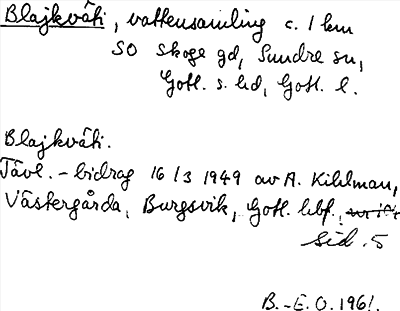 Blajkväti, vattensamling c. 1 km
SO Skoge gd, Sundre sn,
Gotl. s. hd, Gotl. l.
Blajkväti.
Tävl.-bidrag 16/3 1949 av A. Kihlman,
Västergårda, Burgsvik, Gotl. hbf.,
sid. 5
B.-E.O. 1961.